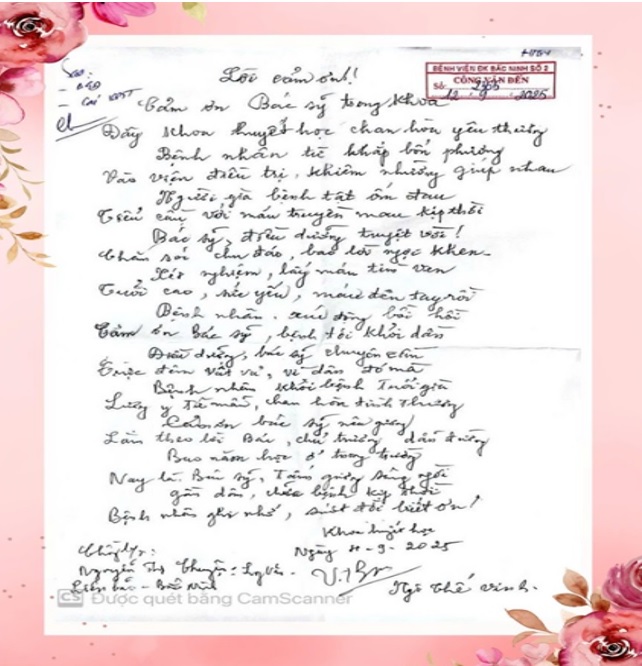 Lời cảm ơn!
BỆNH VIỆN ĐK BẮC NINH SỐ 2
CÔNG VĂN ĐẾN
Số:
12 - 9 - 2025
Cảm ơn Bác sỹ trong khoa
Đây khoa huyết học chan hòa yêu thương
Bệnh nhân từ khắp bốn phương
Vào viện điều trị, khiêm nhường giúp nhau
Người già bệnh tật ốm đau
Tiểu cầu với máu truyền mau kịp thời
Bác sỹ, điều dưỡng tuyệt vời!
Chăm sóc chu đáo, bao lời ngợi khen
Xét nghiệm, lấy máu tìm ven
Tuổi cao, sức yếu, máu đến tay rồi
Bệnh nhân xúc động bồi hồi
Cảm ơn Bác sỹ, bệnh tôi khỏi dần
Điều dưỡng, bác sỹ chuyên cần
đêm vất vả, vì dân đó mà
Bệnh nhân khỏi bệnh Tuổi già
Lương y Từ mẫu, chan hòa tình thương
Cảm ơn bác sỹ nêu gương
Làm theo lời Bác, chủ trương dẫn đường
Bao năm học ở trong trường
Nay là Bác sỹ, Tấm gương sáng ngời
gần dân, chữa bệnh kịp thời
Bệnh nhân ghi nhớ, suốt đời biết ơn!
Khoa huyết học
Ngày 11-9-2025
Nguyễn Thị
Bắc Ninh
Ngô Thế Vinh
CS Được quét bằng CamScanner